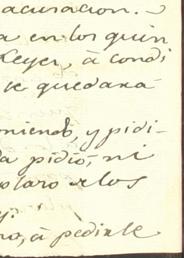 acusacion.
a en los quin
Keyer, à condi
le quedara
oniendo, y pidi-
da pidió, ni
plazo a los
y.
no, à pedirle